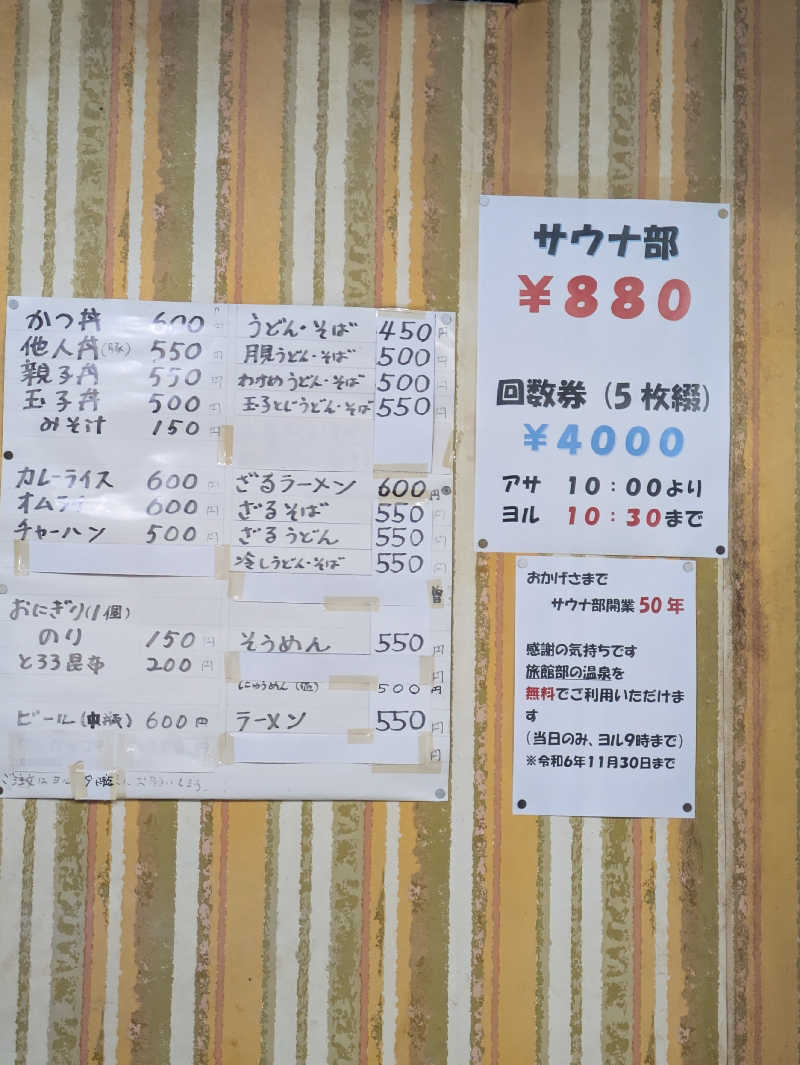 かつ丼 600円
他人丼(豚) 550円
親子丼 550円
玉子丼 500円
みそ汁 150円
カレーライス 600円
オムライス 600円
チャーハン 500円
おにぎり(1個)
のり 150円
とろろ昆布 200円
ビール(中瓶) 600円
うどん・そば 450円
月見うどん・そば 500円
わかめうどん・そば 500円
玉子とじうどん・そば 550円
ざるラーメン 600円
ざるそば 550円
ざるうどん 550円
冷しうどん・そば 550円
そうめん 550円
にゅうめん 500円
ラーメン 550円
円
ご注文はヨル9時
サウナ部
¥880
回数券（5枚綴）
¥4000
アサ 10：00より
ヨル 10：30まで
おかげさまで
サウナ部開業50年
感謝の気持ちです
旅館部の温泉を
無料でご利用いただけま
す
（当日のみ、ヨル9時まで）
※令和6年11月30日まで